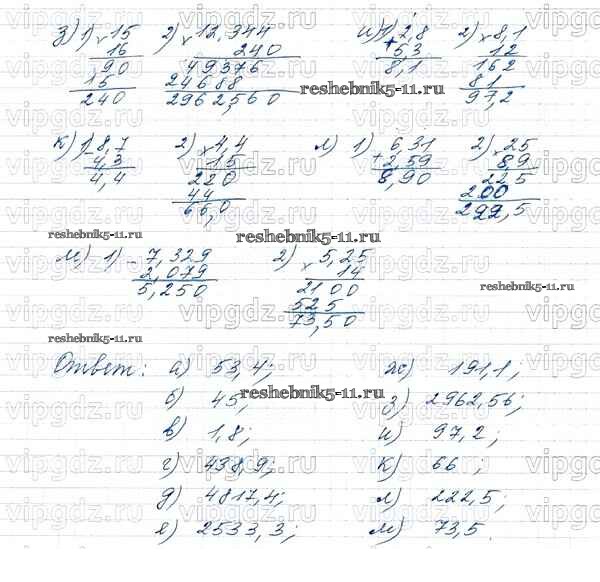 з) 1) × 15 2) × 12,344 и) 1) + 2,8 2) × 8,1
16 240 5,3 12
90 49376 8,1 162
15 24688 81
240 2962,560 97,2
reshebnik5-11.ru
к) 1) – 8,7 2) × 4,4 л) 1) 6,31 2) × 25
4,3 15 + 2,59 8,9
4,4 220 8,90 225
44 200
66,0 222,5
reshebnik5-11.ru
reshebnik5-11.ru
м) 1) – 7,329 2) × 5,25
2,079 14
5,250 2100
525
73,50
reshebnik5-11.ru
reshebnik5-11.ru
Ответ: а) 53,4; ж) 191,1;
б) 45; з) 2962,56;
reshebnik5-11.ru
в) 1,8; и) 97,2;
г) 438,9; к) 66 ;
д) 4817,4; л) 222,5;
е) 2533,3; м) 73,5.
vipgdz.ru